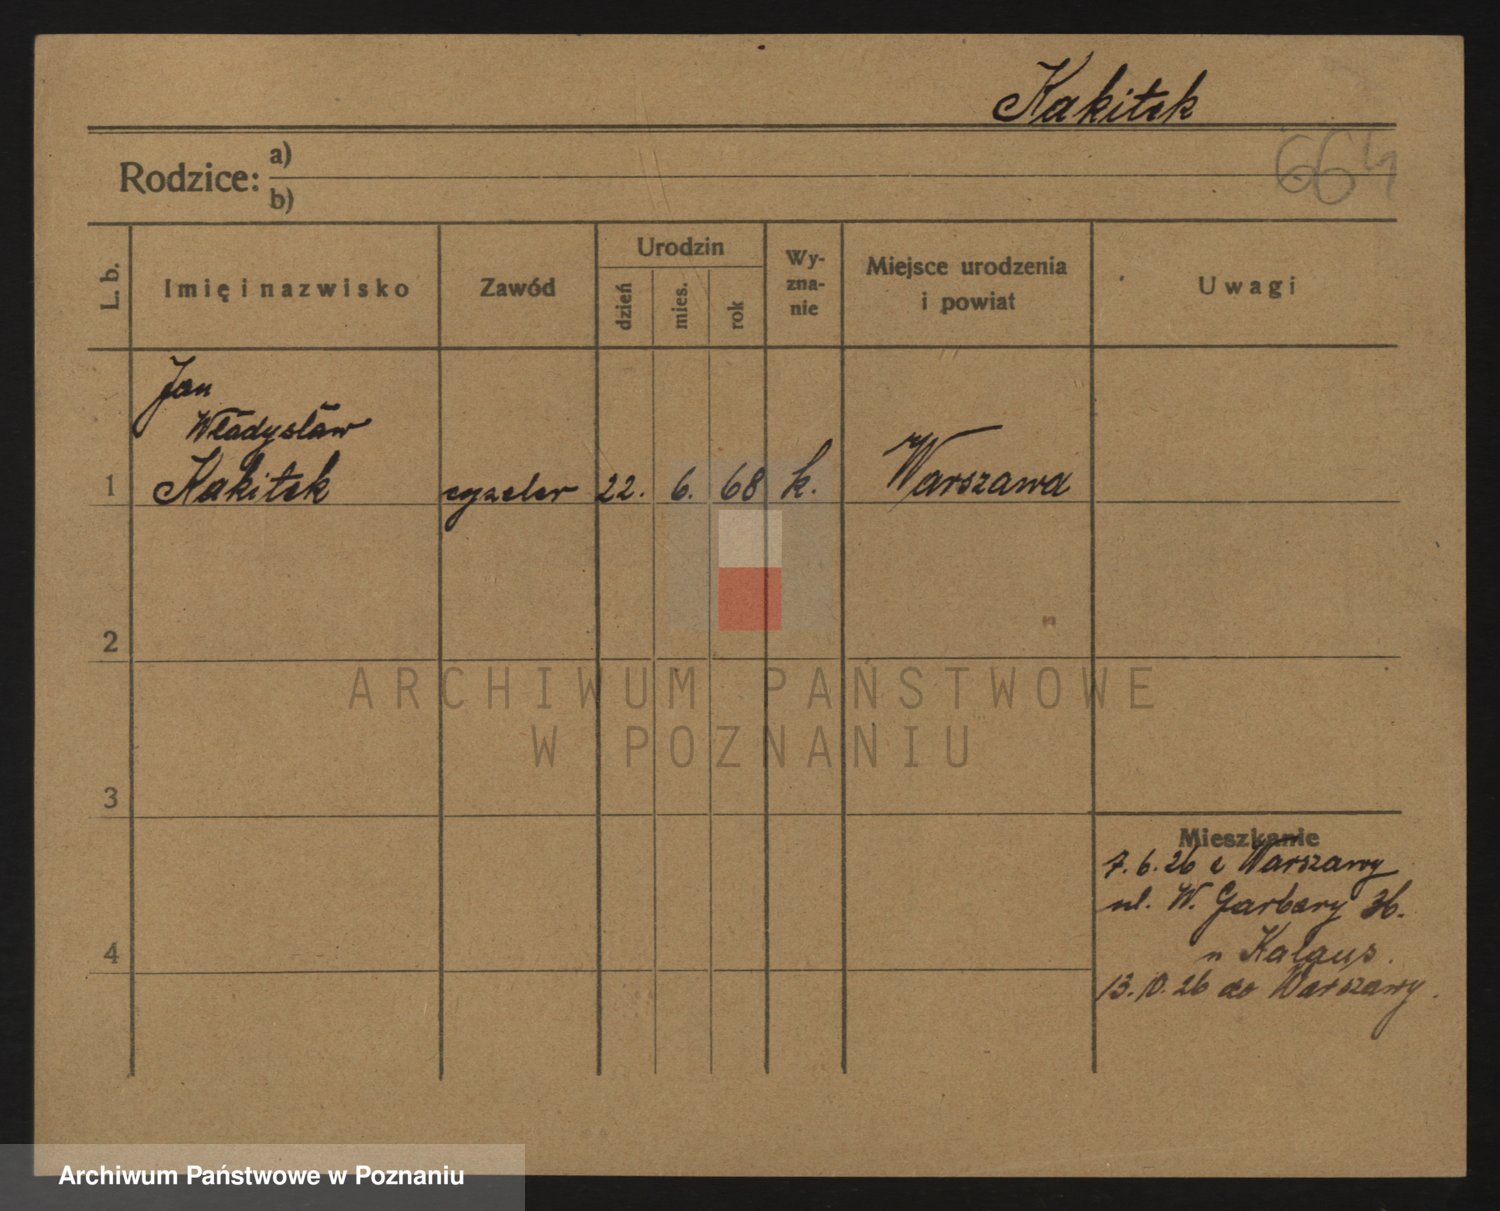 Kakitek
664
Rodzice: a)
b)
L. b.
Imię i nazwisko
Zawód
Urodzin
dzień
mies.
rok
Wy-
zna-
nie
Miejsce urodzenia
i powiat
Uwagi
Jan
Władysław
1 Kakitek cyzeler 22. 6. 68 k. Warszawa
2
ARCHIWUM PAŃSTWOWE
W POZNANIU
3
Mieszkanie
7.6.26 z Warszawy
ul. W. Garbary 36.
u Kalaus.
4
13.10.26 do Warszawy.
Archiwum Państwowe w Poznaniu